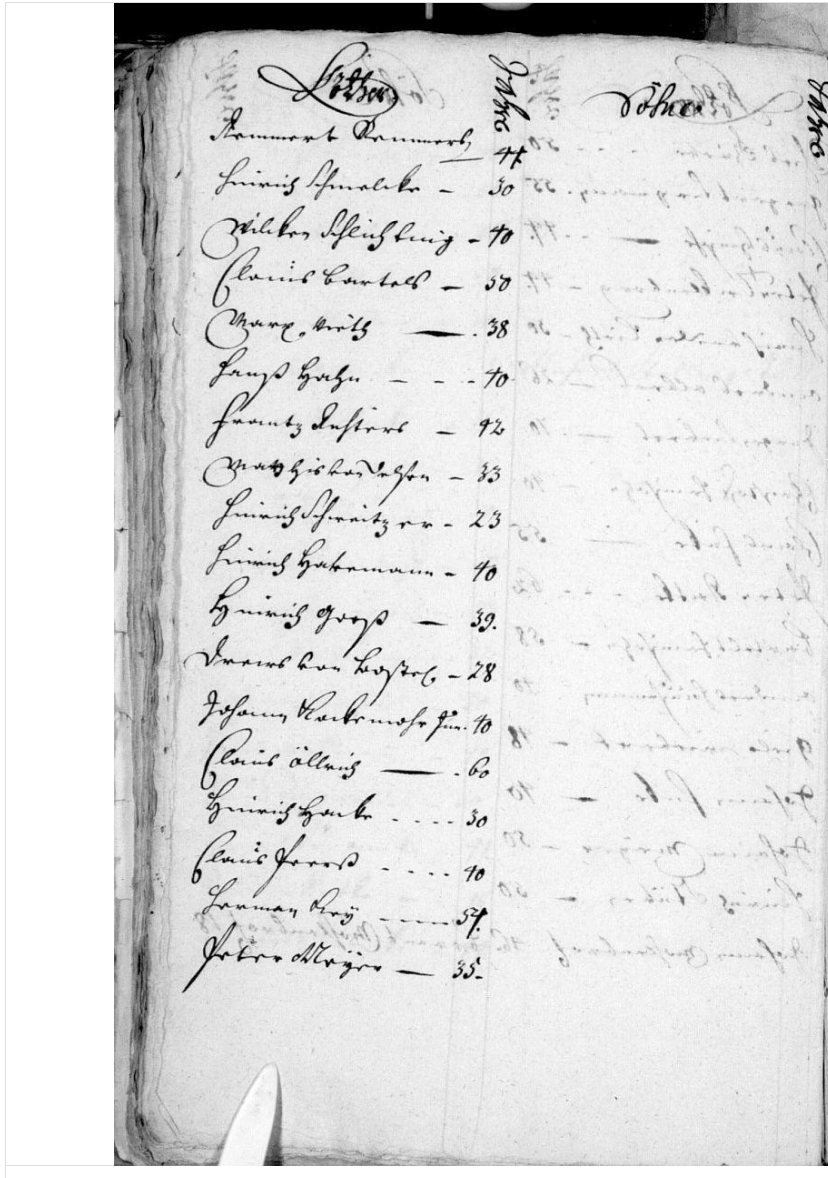 Köther Jahre Söhne Jahre
Remmert Remmers 44
Hinrich Schmelcke - 30
Wilcken Schlichting - 40
Claus Bartels - 50
Marx Vieth - 38
Hanß Hahn - - - 40
Frantz Richters - 42
Matthis von - 33
Hinrich Schweitzer - 23
Hinrich Hakemann - 40
Hinrich Groß - 39.
Drews von Borstel - 28
Johann Rackemohr Jun. 40
Claus öllrich - 60
Hinrich Hancke - - - - 30
Claus Peerß - - - - 40
Herman Rey - - - - 54.
Peter Meÿer - 35.